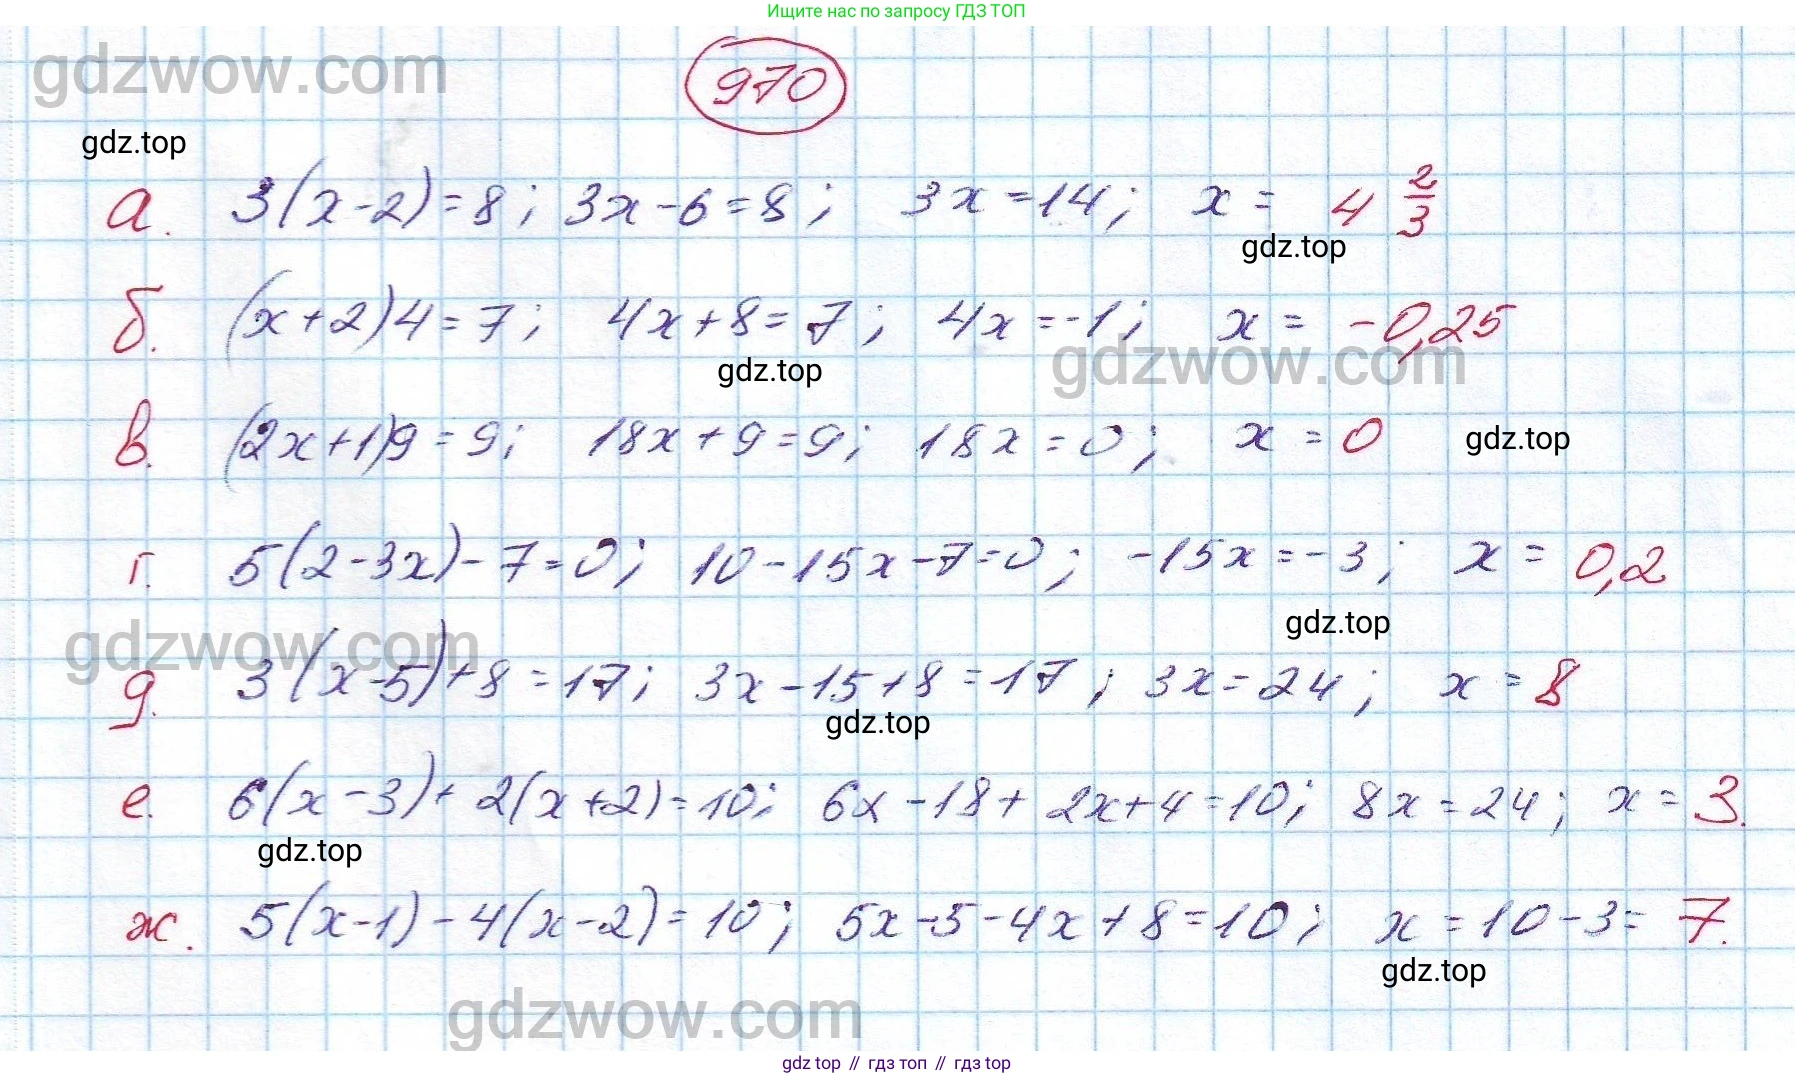 Ищите нас по запросу ГДЗ ТОП
gdzwow.com
970
gdz.top
а. 3(x-2)=8; 3x-6=8; 3x=14; x= 4 2/3
gdz.top
б. (x+2)4=7; 4x+8=7; 4x=-1; x= -0,25
gdz.top
gdzwow.com
в. (2x+1)9=9; 18x+9=9; 18x=0; x=0
gdz.top
г. 5(2-3x)-7=0; 10-15x-7=0; -15x=-3; x= 0,2
gdz.top
gdzwow.com
д. 3(x-5)+8=17; 3x-15+8=17; 3x=24; x=8
gdz.top
е. 6(x-3)+2(x+2)=10; 6x-18+2x+4=10; 8x=24; x=3.
gdz.top
ж. 5(x-1)-4(x-2)=10; 5x-5-4x+8=10; x=10-3=7.
gdz.top
gdzwow.com
gdz top // гдз топ // гдз top